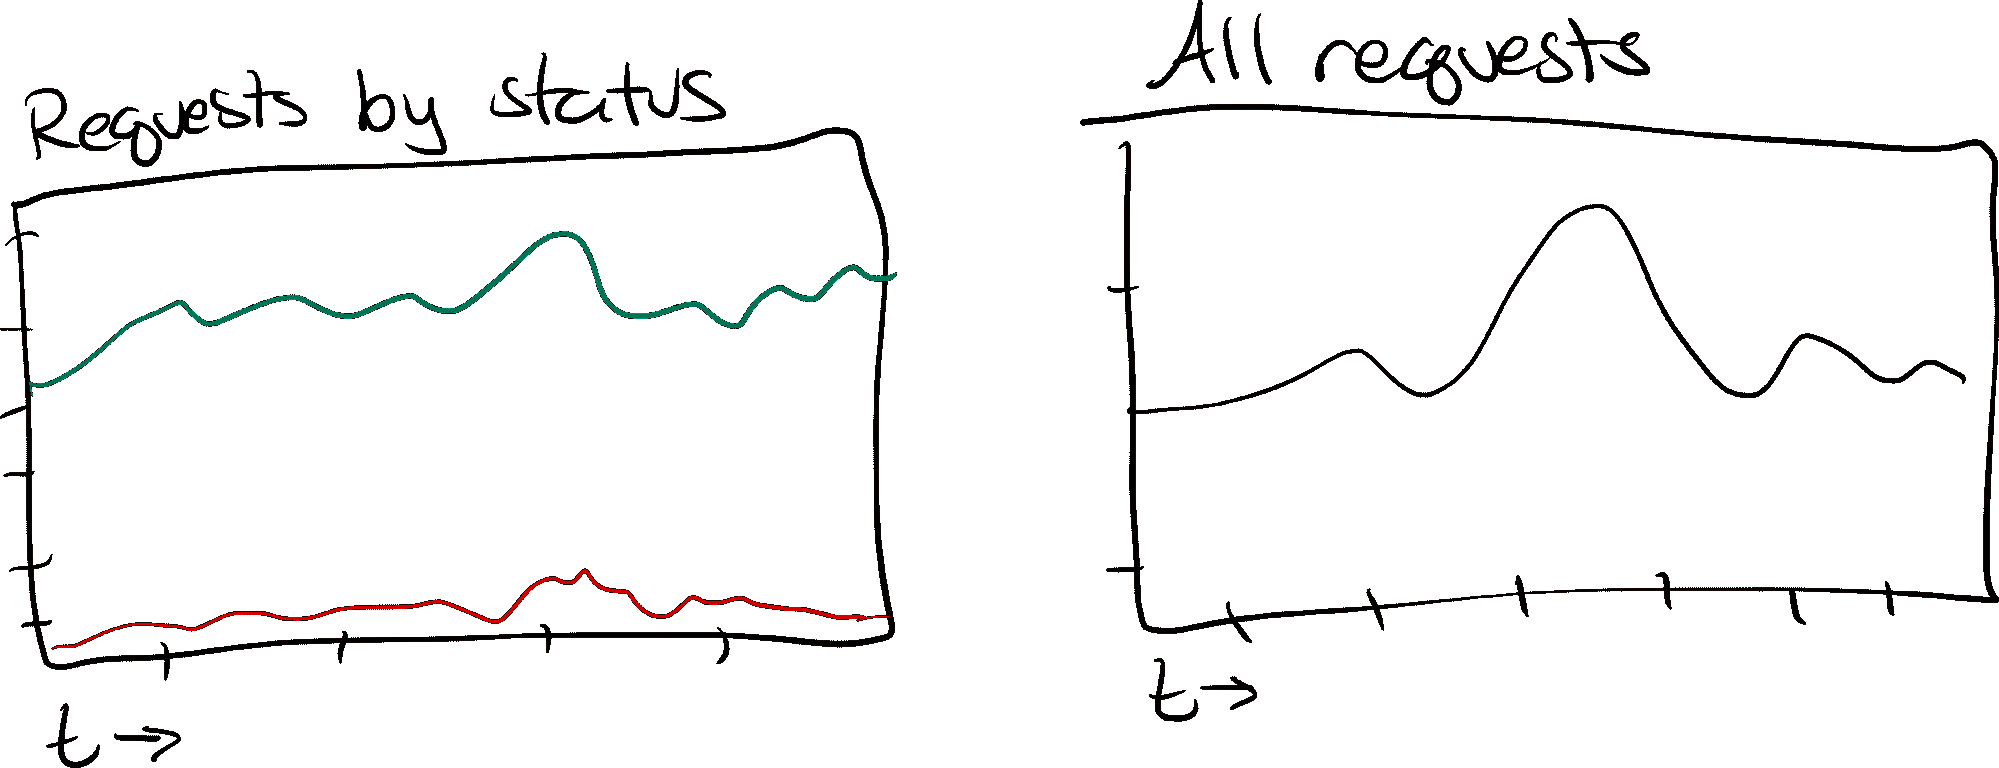 Requests by status
All requests
t →
t →